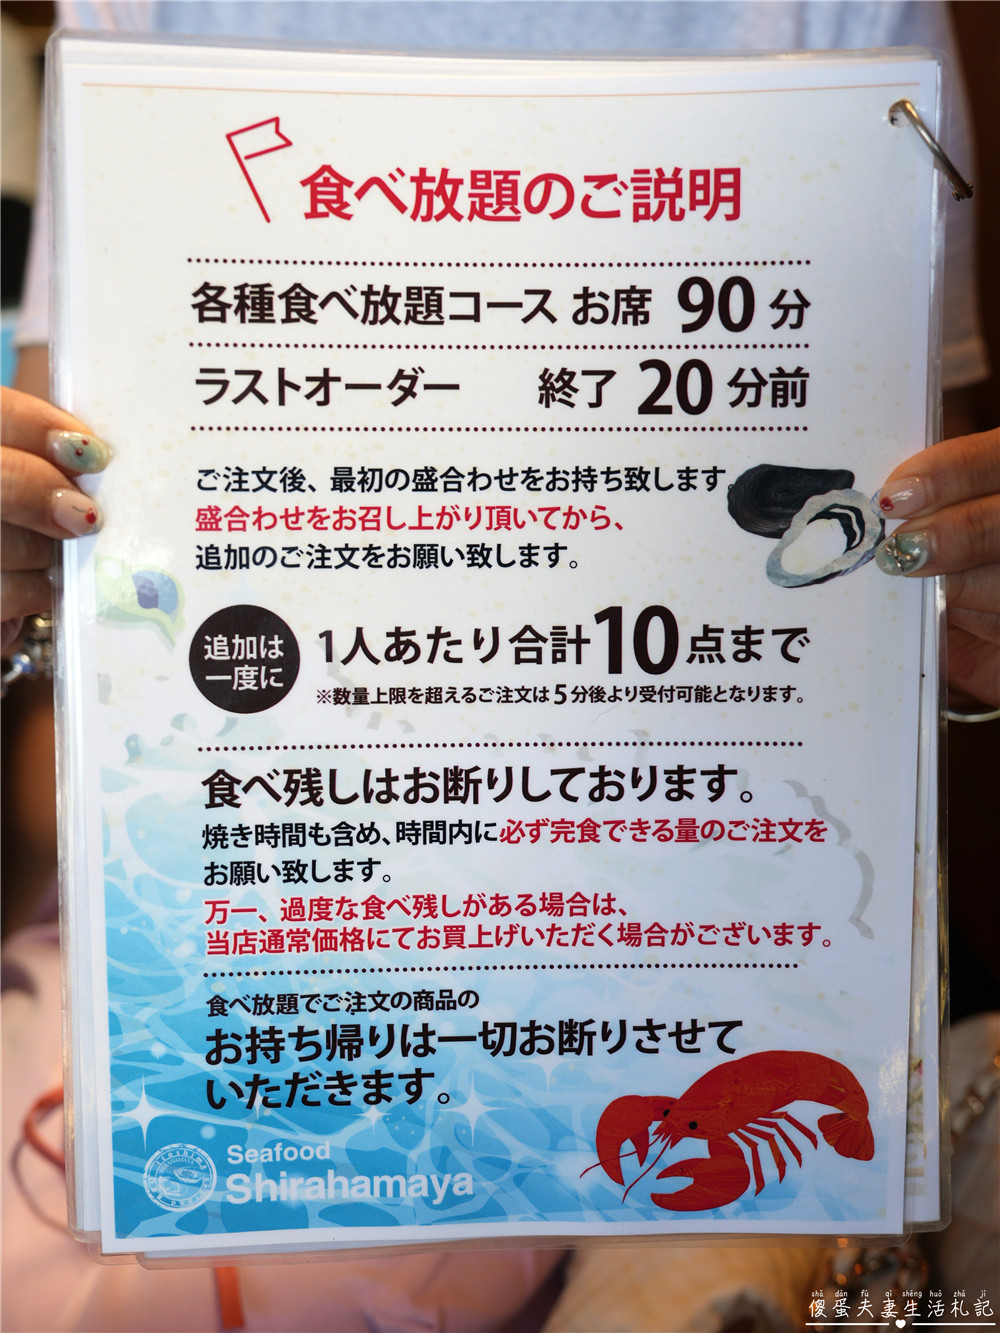 食べ放題のご説明
各種食べ放題コース お席 90 分
ラストオーダー 終了 20 分前
ご注文後、最初の盛合わせをお持ち致します
盛合わせをお召し上がり頂いてから、
追加のご注文をお願い致します。
追加は
一度に
1人あたり合計10点まで
※数量上限を超えるご注文は5分後より受付可能となります。
食べ残しはお断りしております。
焼き時間も含め、時間内に必ず完食できる量のご注文を
お願い致します。
万一、過度な食べ残しがある場合は、
当店通常価格にてお買上げいただく場合がございます。
食べ放題でご注文の商品の
お持ち帰りは一切お断りさせて
いただきます。
Seafood
Shirahamaya
shǎ dàn fū qī shēng huó zhá jì
傻蛋夫妻生活札記